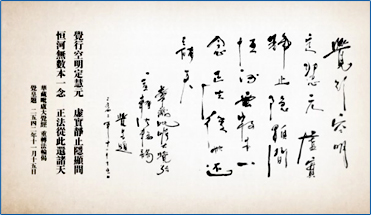 覺行空明
定慧元 虛實
靜止隱顯間
恒河無數本一
念正法從此還
諸天
華藏毗盧大覺經
重轉法輪偈
覺皇題
覺行空明定慧元 虛實靜止隱顯間
恒河無數本一念 正法從此還諸天
華藏毗盧大覺經 重轉法輪偈
覺皇題 二五四二年十一月十五日